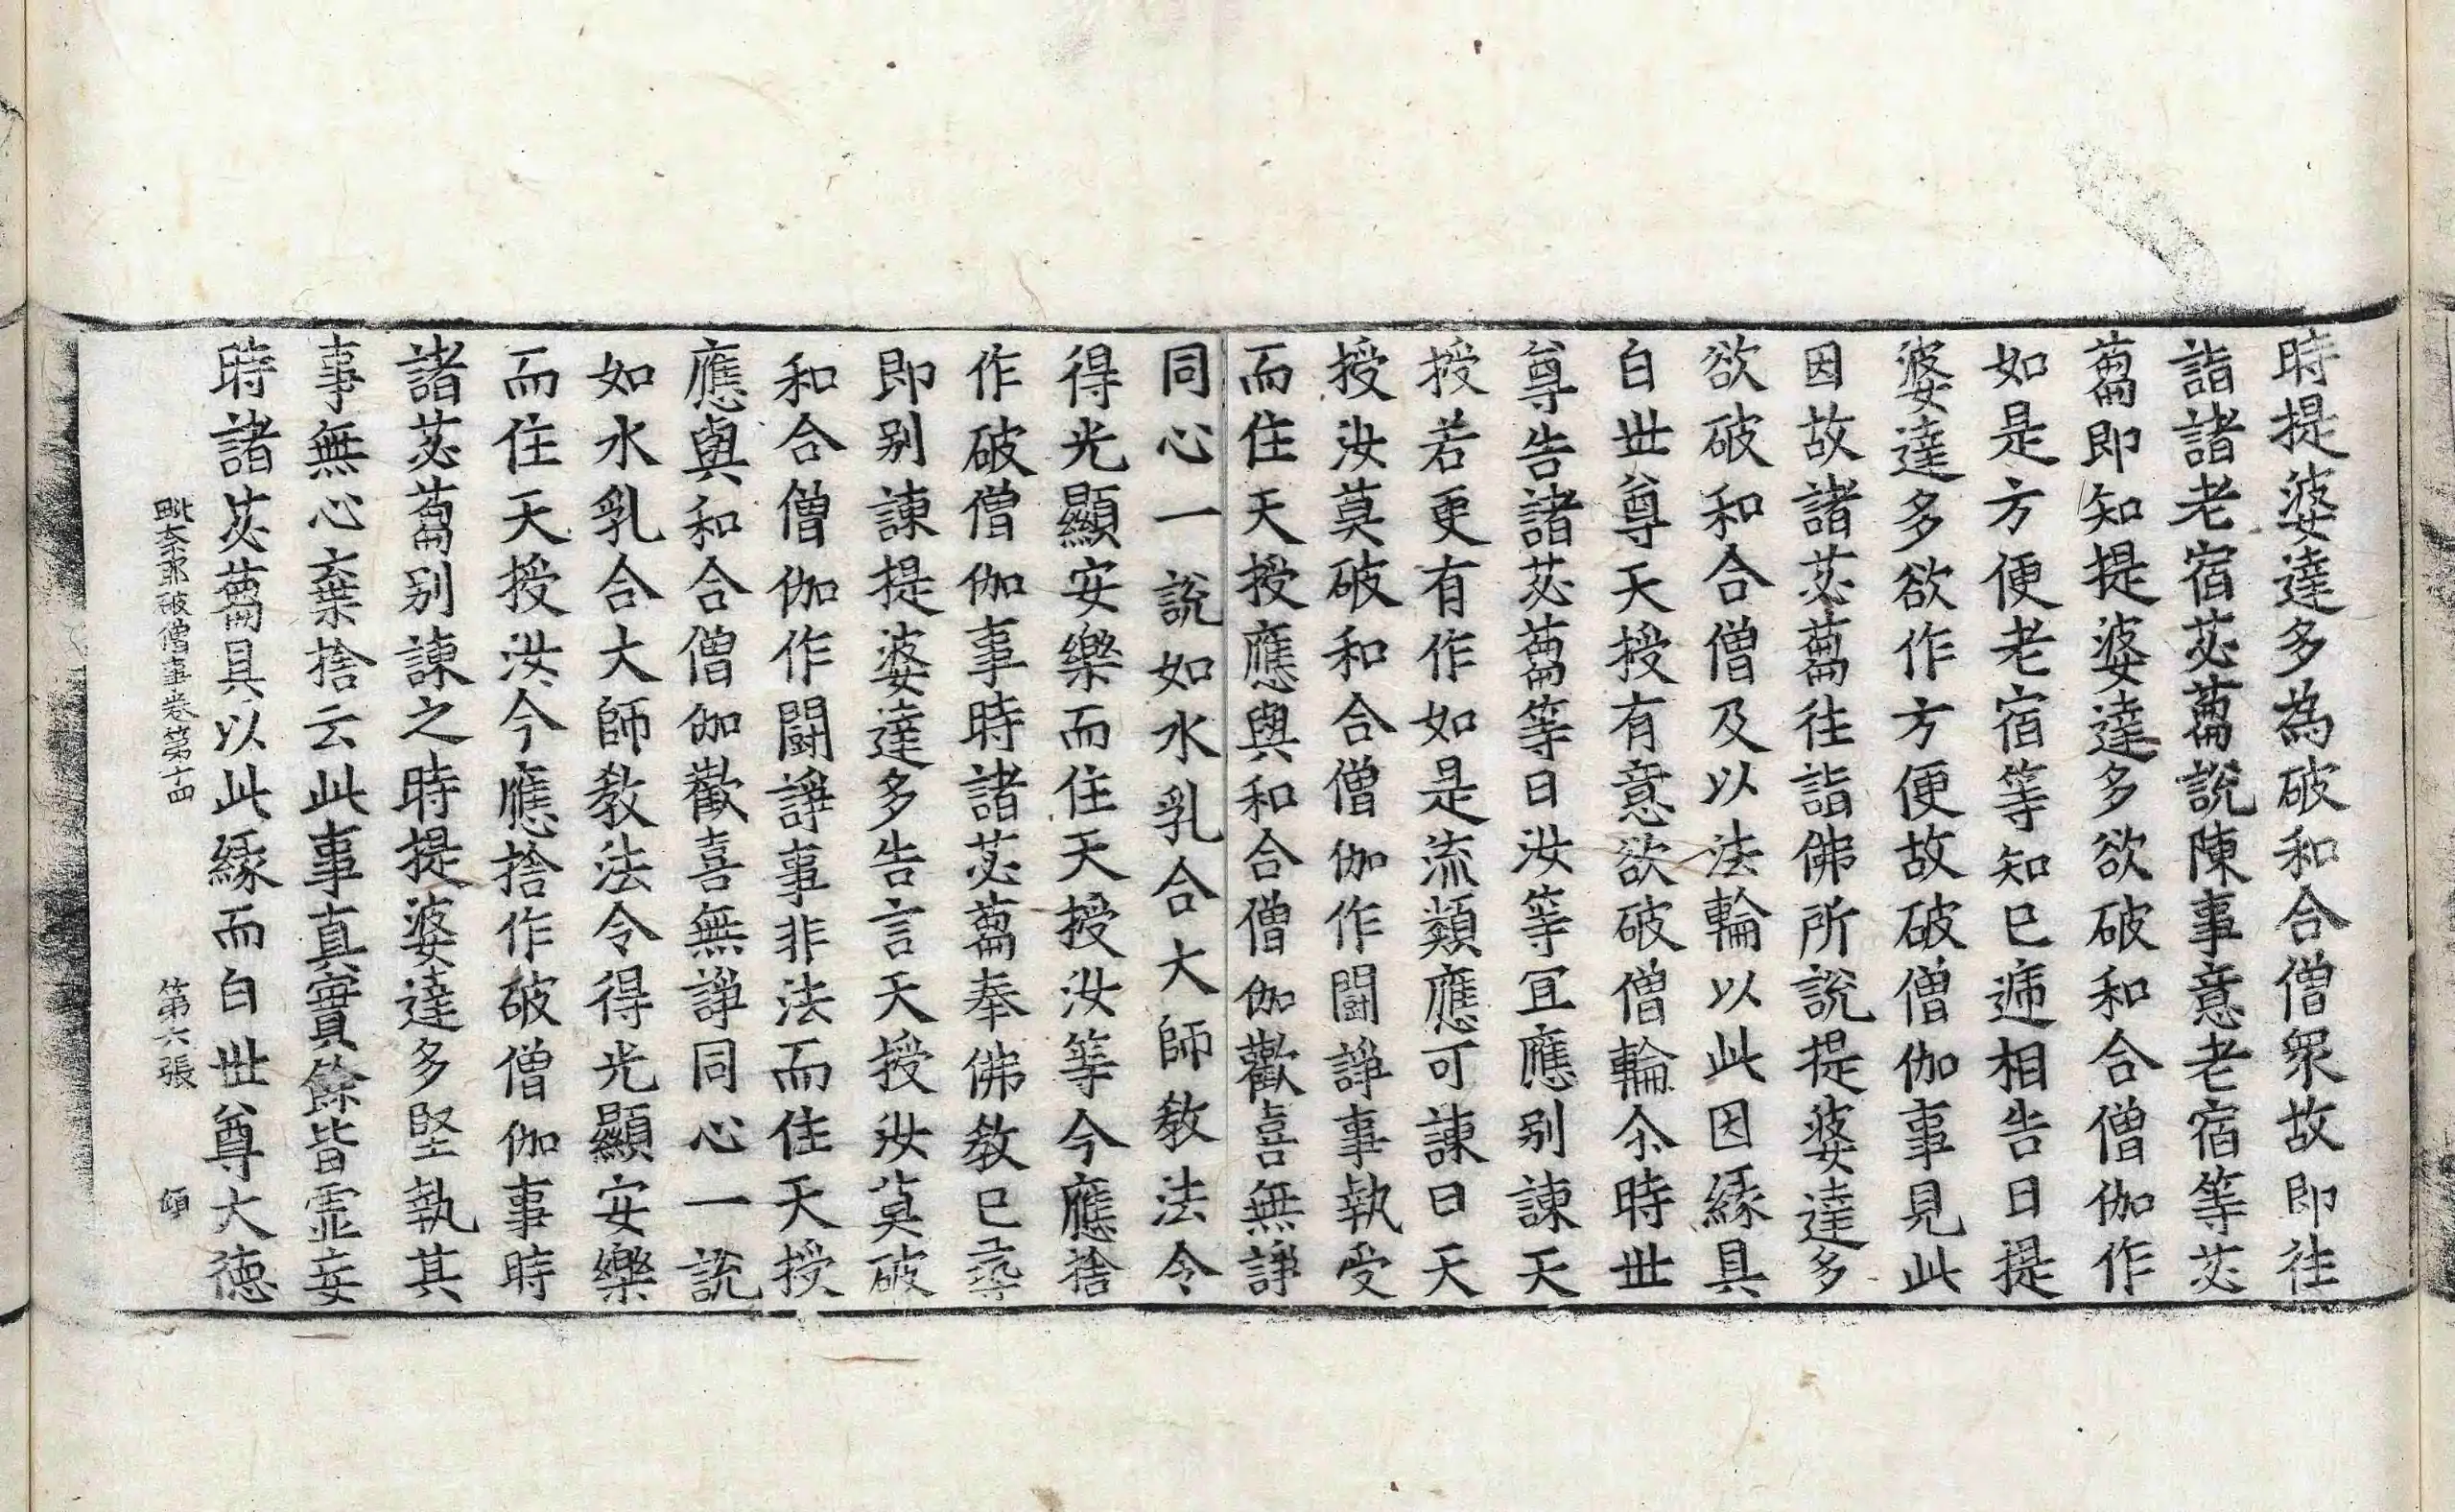 時提婆達多為破和合僧衆故即往
詣諸老宿苾蒭說陳事意老宿等苾
蒭即知提婆達多欲破和合僧伽作
如是方便老宿等知已遞相告曰提
婆達多欲作方便故破僧伽事見此
因故諸苾蒭往詣佛所說提婆達多
欲破和合僧及以法輪以此因緣具
白世尊天授有意欲破僧輪尒時世
尊告諸苾蒭等曰汝等冝應別諫天
授若更有作如是流類應可諫曰天
授汝莫破和合僧伽作鬪諍事執受
而住天授應與和合僧伽歡喜無諍
同心一說如水乳合大師教法令
得光顯安樂而住天授汝等今應捨
作破僧伽事時諸苾蒭奉佛教已尋
即別諫提婆達多告言天授汝莫破
和合僧伽作鬪諍事非法而住天授
應與和合僧伽歡喜無諍同心一說
如水乳合大師教法令得光顯安樂
而住天授汝今應捨作破僧伽事時
諸苾蒭別諫之時提婆達多堅執其
事無心棄捨云此事真實餘皆虛妄
時諸苾蒭具以此緣而白世尊大德
毗奈耶破僧事卷第十四 第六張